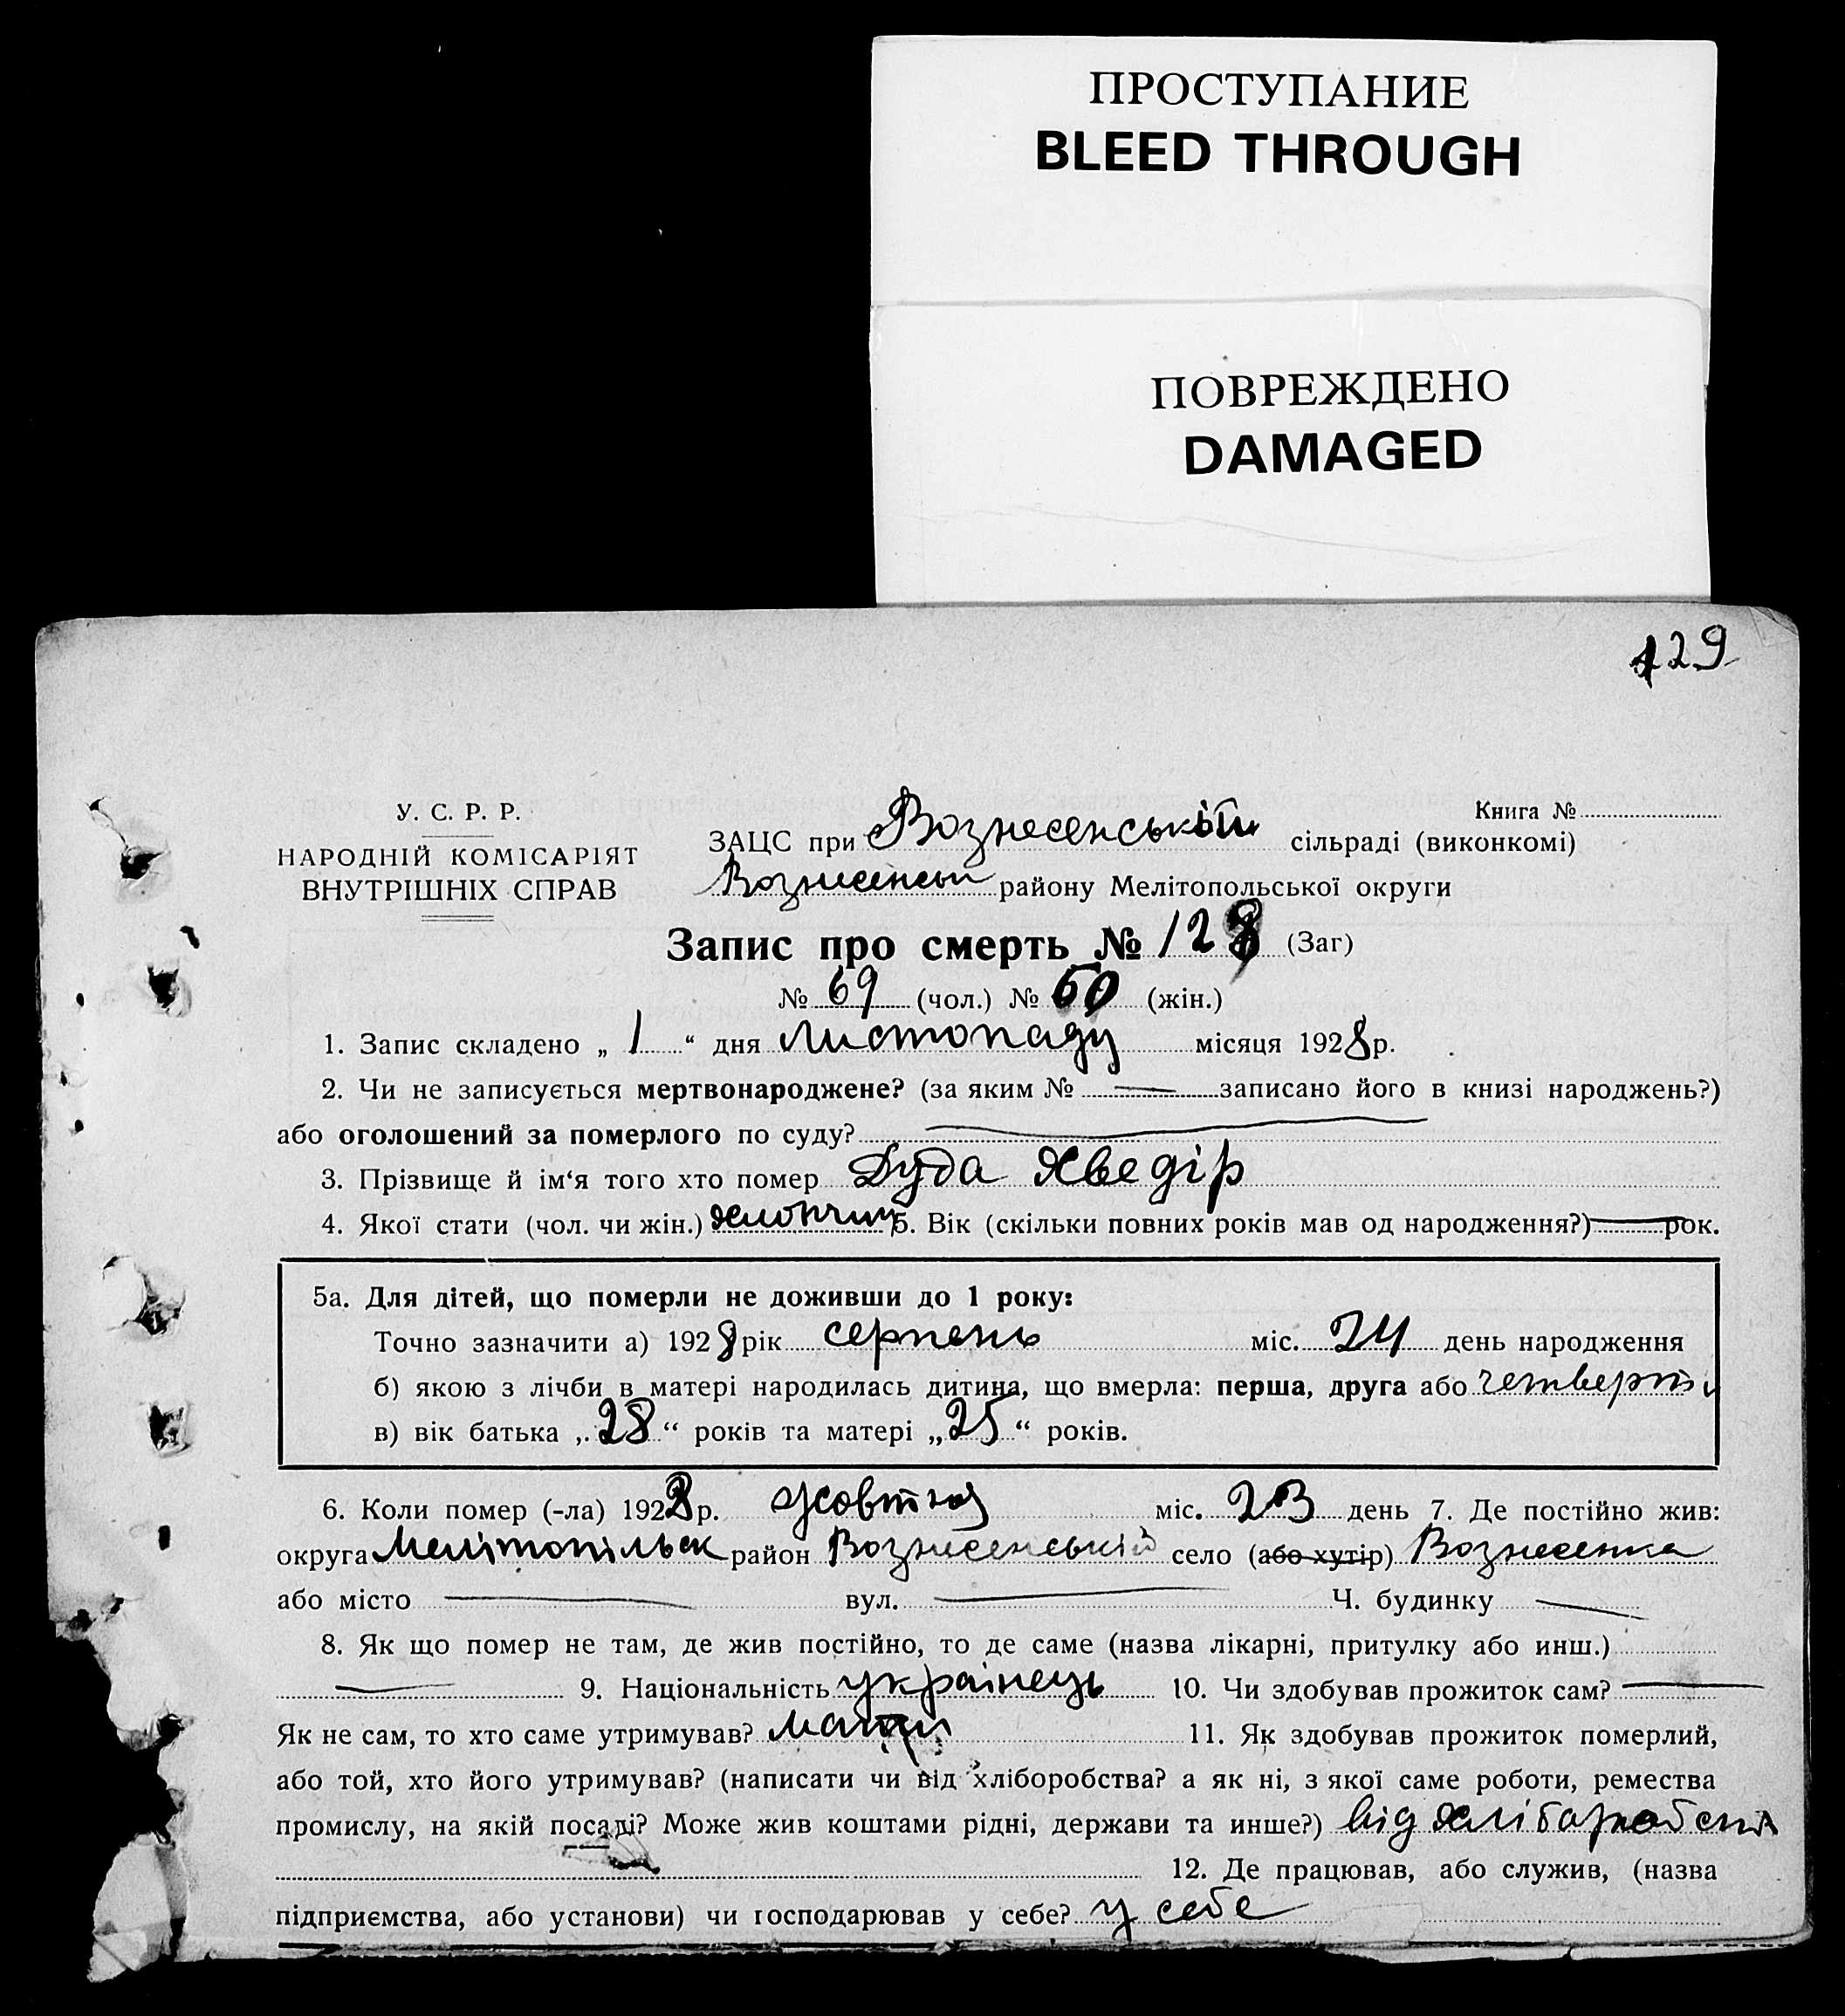 ПРОСТУПАНИЕ
BLEED THROUGH
ПОВРЕЖДЕНО
DAMAGED
129
У. С. Р. Р.
НАРОДНІЙ КОМІСАРІЯТ
ВНУТРІШНІХ СПРАВ
Книга №
ЗАЦС при Вознесенській сільраді (виконкомі)
Вознесенськ району Мелітопольської округи
Запис про смерть № 128 (Заг)
№ 69 (чол.) № (жін.)
1. Запис складено „ 1 “ дня листопаду місяця 1928 р.
2. Чи не записується мертвонароджене? (за яким № — записано його в книзі народжень?)
або оголошений за померлого по суду? —
3. Прізвище й ім‘я того хто помер Дуда Хведір
4. Якої стати (чол. чи жін.) хлопчик 5. Вік (скільки повних років мав од народження?) — рок.
5а. Для дітей, що померли не доживши до 1 року:
Точно зазначити а) 1928 рік серпень міс. 24 день народження
б) якою з лічби в матері народилась дитина, що вмерла: перша, друга або
в) вік батька „ 28 “ років та матері „ 25 “ років.
6. Коли помер (-ла) 1928 р. жовтня міс. 23 день 7. Де постійно жив:
округа Мелітопільск район Вознесенський село (або хутір) Вознесенка
або місто — вул. — Ч. будинку —
8. Як що помер не там, де жив постійно, то де саме (назва лікарні, притулку або инш.)
— 9. Національність українець 10. Чи здобував прожиток сам? —
Як не сам, то хто саме утримував? 11. Як здобував прожиток померлий,
або той, хто його утримував? (написати чи від хліборобства? а як ні, з якої саме роботи, ремества
промислу, на якій посаді? Може жив коштами рідні, держави та инше?) від
12. Де працював, або служив, (назва
підприємства, або установи) чи господарював у себе? у себе